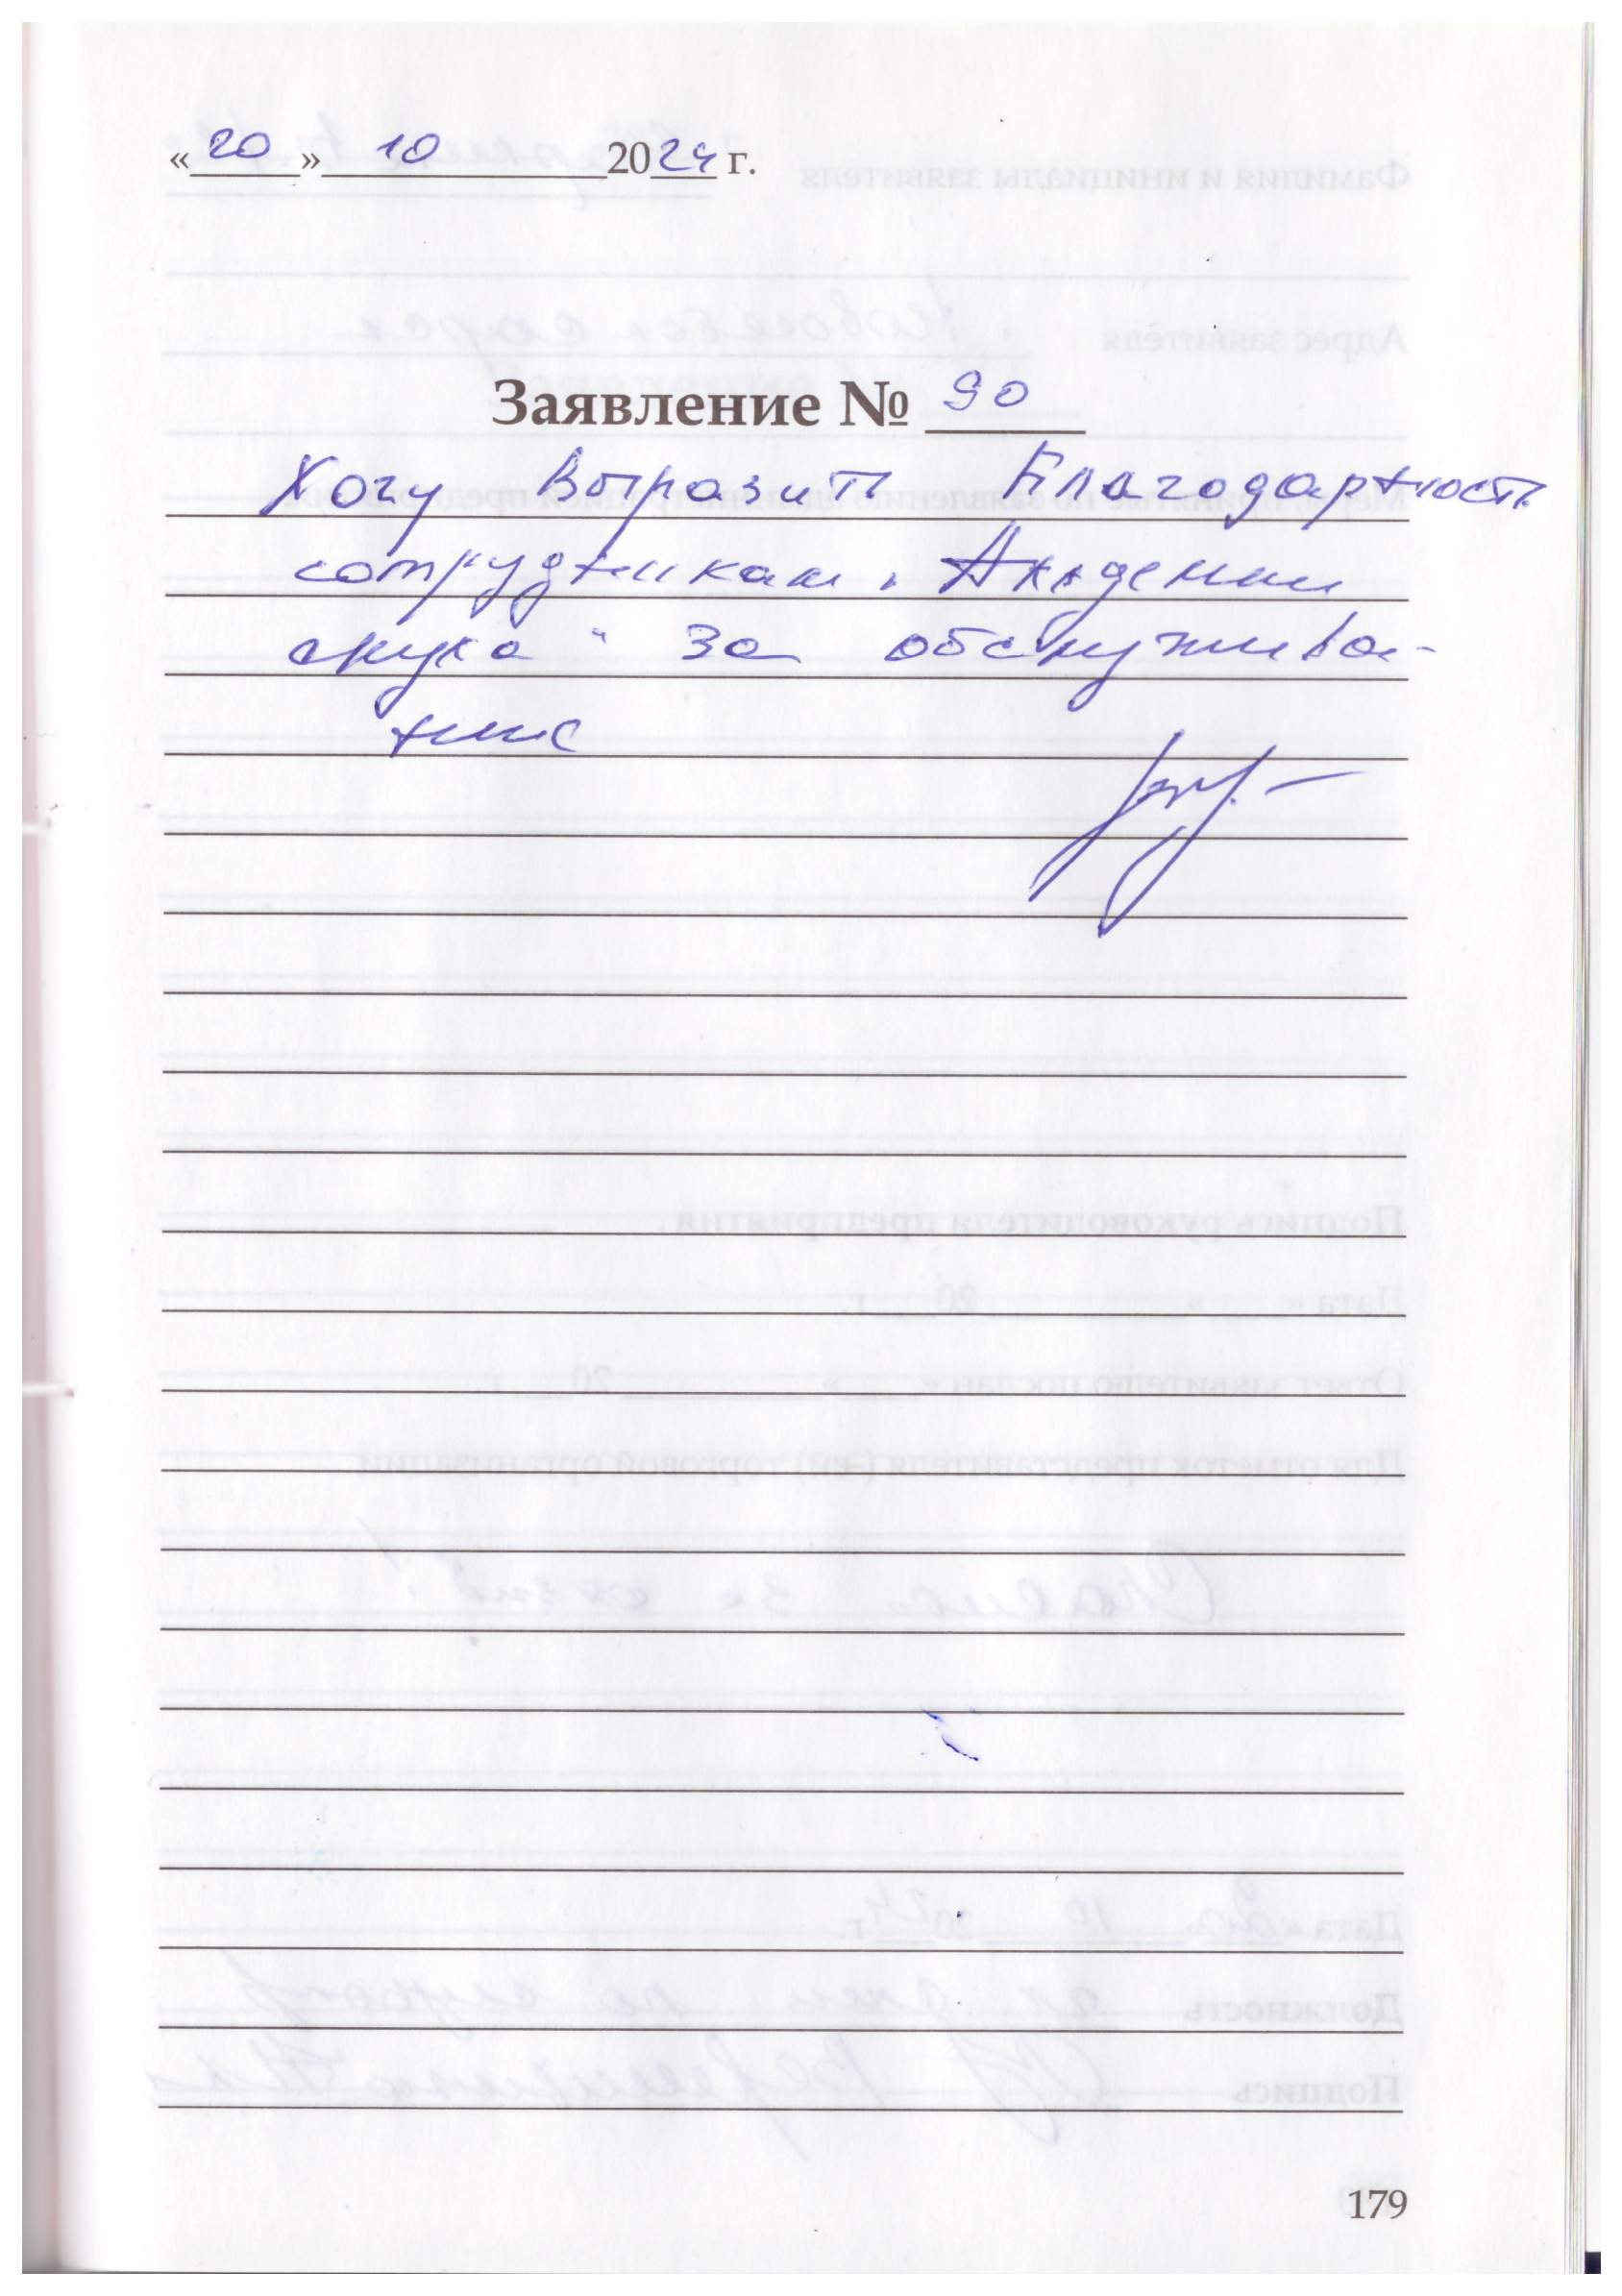 «20» 10 2024 г.
Заявление № 90
Хочу выразить благодарность
сотрудникам „Академии
слуха" за обслужива-
ние
179